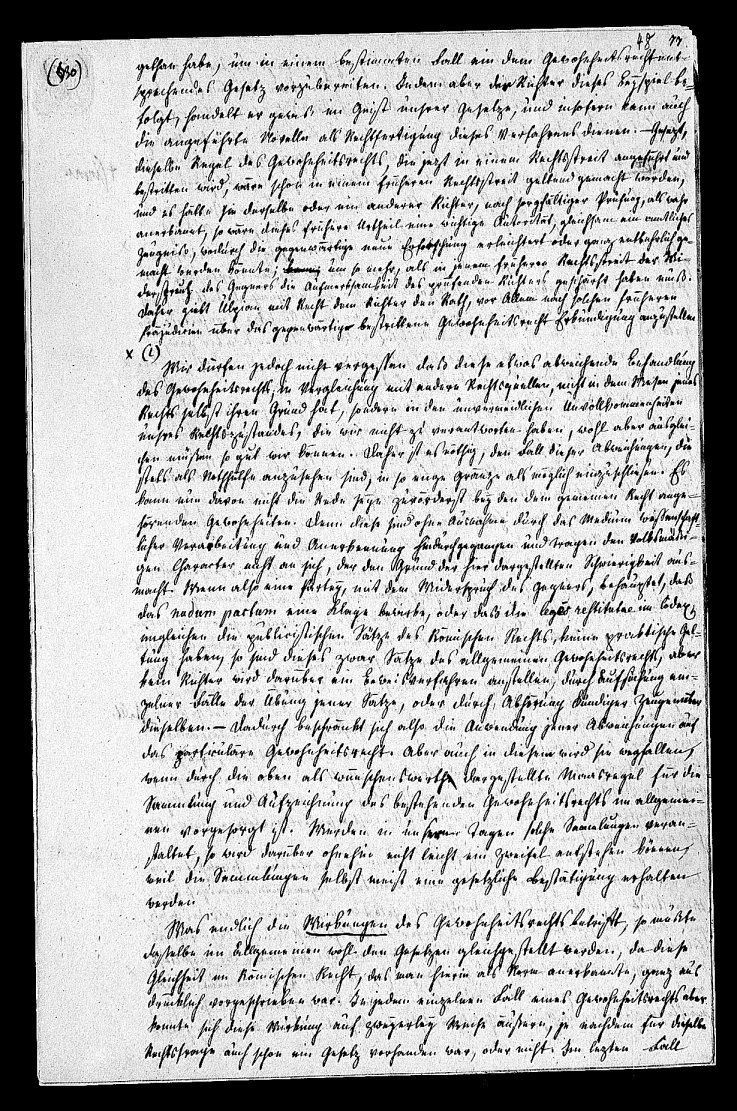 48 33
(530)
gethan habe, um in einem bestimmten Fall ein dem Gewohnheitsrecht ent-
sprechendes Gesetz vorzubereiten. Indem aber der Richter dieses Beyspiel be-
folgt, handelt er gewiß im Geist unsrer Gesetze, und insofern kann auch
die angeführte Novelle als Rechtfertigung dieses Verfahrens dienen. – Gesetzt,
dieselbe Regel des Gewohnheitsrechts, die jetzt in einem Rechtsstreit angeführt und
bestritten wird, wäre schon in einem früheren Rechtsstreit geltend gemacht worden,
und es hätte sie derselbe oder ein anderer Richter, nach sorgfältiger Prüfung, als wahr
anerkannt, so wäre dieses frühere Urtheil eine wichtige Autorität, gleichsam ein amtliches
Zeugniß, wodurch die gegenwärtige neue Erforschung erleichtert oder ganz entbehrlich ge-
macht werden könnte; um so mehr, als in jenem früheren Rechtsstreit der Wi-
derspruch des Gegners die Aufmerksamkeit des prüfenden Richters geschärft haben muß.
Daher giebt Ulpian mit Recht dem Richter den Rath, vor Allem nach solchen früheren
Präjudicien über das gegenwärtige bestrittene Gewohnheitsrecht Erkundigung anzustellen
x (i)
Wir dürfen jedoch nicht vergessen daß diese etwas abweichende Behandlung
des Gewohnheitsrechts, in Vergleichung mit andern Rechtsquellen, nicht in dem Wesen jenes
Rechts selbst ihren Grund hat, sondern in den unvermeidlichen Unvollkommenheiten
unsres Rechtszustandes, die wir nicht zu verantworten haben, wohl aber ausglei-
chen müssen so gut wir können. Daher ist es nöthig, den Fall dieser Abweichungen, die
stets als Nothhülfe anzusehen sind, in so enge Gränze als möglich einzuschließen. Es
kann nun davon nicht die Rede seyn zuvörderst bey den dem gemeinen Recht ange-
hörenden Gewohnheiten. Denn diese sind ohne Ausnahme durch das Medium wissenschaft-
licher Verarbeitung und Anerkennung hindurchgegangen und tragen den volksmäßi-
gen Character nicht an sich, der den Grund der hier dargestellten Schwierigkeit aus-
macht. Wenn also eine Partey, mit dem Widerspruch des Gegners, behauptet, daß
das nudum pactum eine Klage bewirke, oder daß die leges restitutae im Codex,
imgleichen die publicistischen Sätze des Römischen Rechts, keine praktische Gel-
tung haben, so sind dieses zwar Sätze des allgemeinen Gewohnheitsrechts, aber
kein Richter wird darüber ein Beweisverfahren anstellen, durch Aufsuchung ein-
zelner Fälle der Übung jener Sätze, oder durch Abhörung kundiger Zeugen über
dieselben. – Dadurch beschränkt sich also die Anwendung jener Abweichungen auf
das particuläre Gewohnheitsrecht. Aber auch in diesem wird sie wegfallen,
wenn durch die oben als wünschenswerth dargestellte Maasregel für die
Sammlung und Aufzeichnung des bestehenden Gewohnheitsrechts im allgemei-
nen vorgesorgt ist. Werden in unsern Tagen solche Sammlungen veran-
staltet, so wird darüber ohnehin nicht leicht ein Zweifel entstehen können,
weil die Sammlungen selbst meist eine gesetzliche Bestätigung erhalten
werden
Was endlich die Wirkungen des Gewohnheitsrechts betrifft, so mußte
dasselbe im Allgemeinen wohl den Gesetzen gleichgestellt werden, da diese
Gleichheit im Römischen Recht, das man hierin als Norm anerkannte, ganz aus
drücklich vorgeschrieben war. In jedem einzelnen Fall eines Gewohnheitsrechts aber
konnte sich diese Wirkung auf zweyerley Weise äußern, je nachdem für dieselbe
Rechtsfrage auch schon ein Gesetz vorhanden war, oder nicht. Im letzten Fall